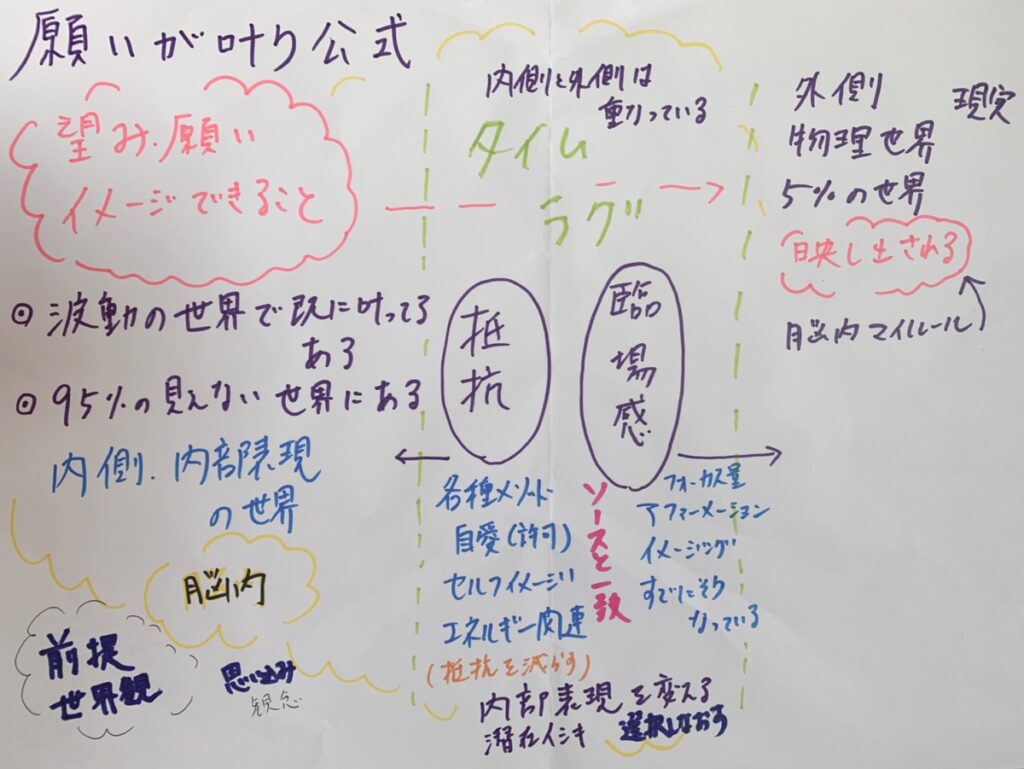 願いが叶う公式
望み・願い
イメージできること
内側と外側は
重なっている
タイム
ラグ
外側
現実
物理世界
5%の世界
映し出される
脳内マイルール
◎ 波動の世界で既に叶ってる
ある
◎ 95%の見えない世界にある
内側・内部表現
の世界
抵抗
臨場感
各種メソッド
自愛(許可)
セルフイメージ
エネルギー関連
(抵抗を減らす)
ソースと一致
フォーカス量
アファーメーション
イメージング
すでにそう
なっている
脳内
前提
世界観
思い込み
観念
内部表現を変える
潜在イシキ
選択しなおす